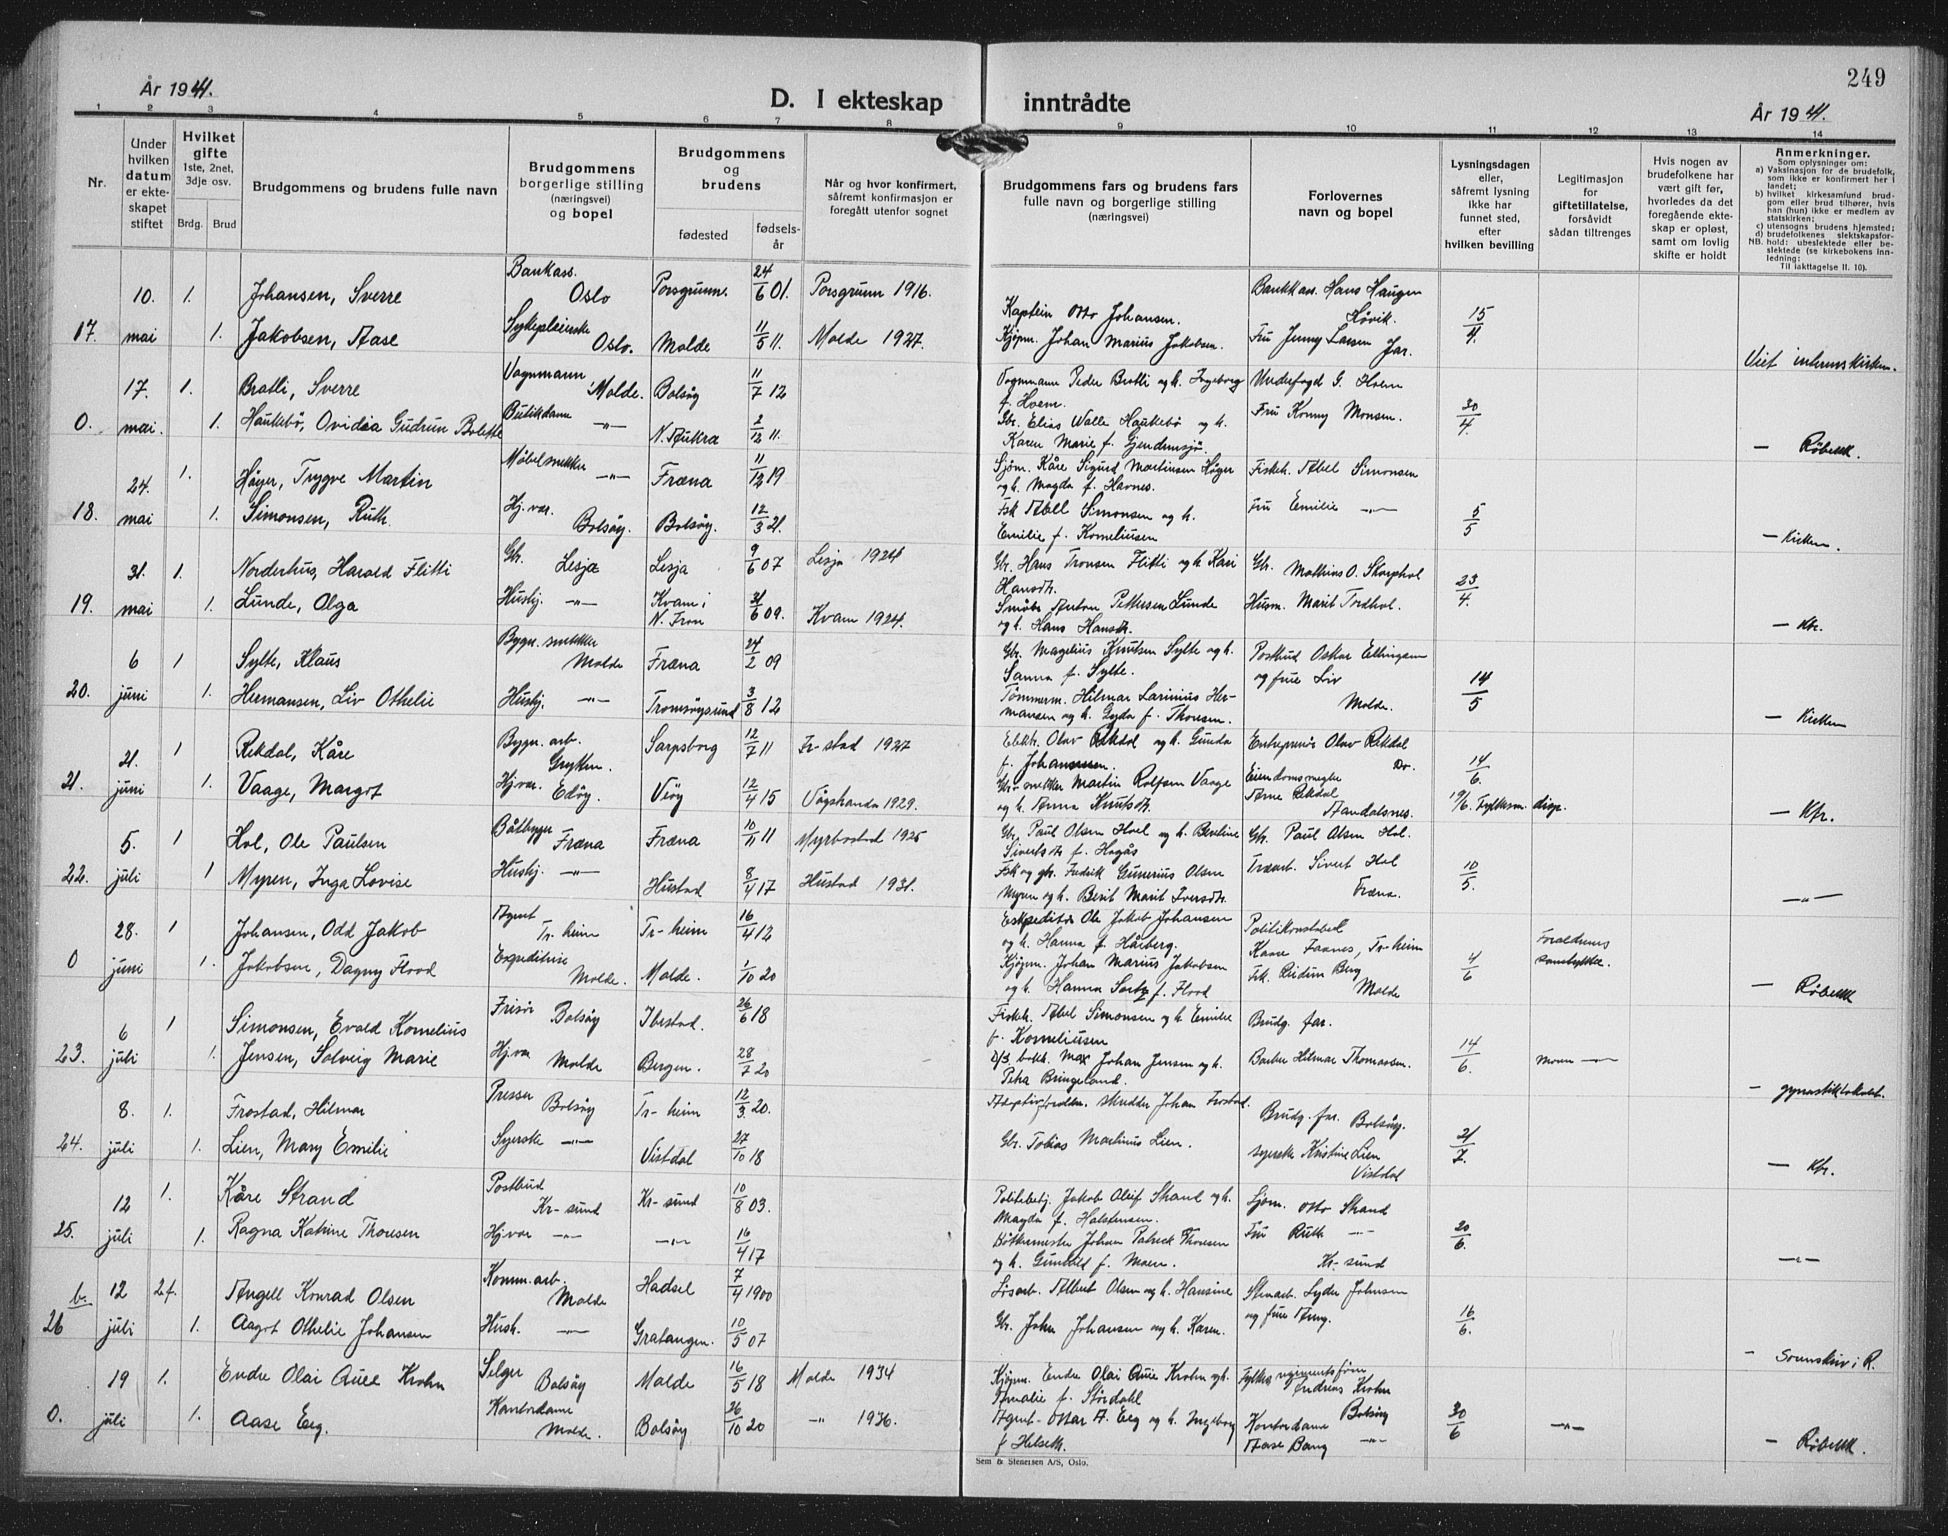 249
År 1941.
D. I ekteskap inntrådte
År 1941.
1 2 3 4 5 6 7 8 9 10 11 12 13 14
Nr.
Under hvilken datum er ekteskapet stiftet
Hvilket gifte 1ste, 2net, 3dje osv.
Brdg. Brud
Brudgommens og brudens fulle navn
Brudgommens borgerlige stilling (næringsvei) og bopel
Brudgommens og brudens
fødested
fødselsår
Når og hvor konfirmert, såfremt konfirmasjon er foregått utenfor sognet
Brudgommens fars og brudens fars fulle navn og borgerlige stilling (næringsvei)
Forlovernes navn og bopel
Lysningsdagen eller, såfremt lysning ikke har funnet sted, efter hvilken bevilling
Legitimasjon for giftetillatelse, forsåvidt sådan tiltrenges
Hvis nogen av brudefolkene har vært gift før, hvorledes da det foregående ekteskap er opløst, samt om lovlig skifte er holdt
Anmerkninger.
Som oplysninger om:
a) Vaksinasjon for de brudefolk, som ikke er konfirmert her i landet;
b) hvilket kirkesamfund brudgom eller brud tilhører, hvis han (hun) ikke er medlem av statskirken;
c) utensogns brudens hjemsted;
d) brudefolkenes slektskapsforhold: ubeslektede eller beslektede (se kirkebokens innledning:
NB. Til iakttagelse II. 10).
10. 1. Johansen, Sverre Bankass. Oslo Porsgrunn. 24/6 01. Porsgrunn 1916. Kaptein Otto Johansen. Bankkass. Hans Haugen Høvik. 15/4
17. mai 1. Jakobsen, Aase Sykepleierske Oslo. Molde 11/5 11. Molde 1927. Kjøpm. Johan Marius Jakobsen. Fru Jenny Larsen Jar. Viet interimskirken.
17. 1. Bratli, Sverre Vognmann Molde. Bolsøy 11/7 12 Vognmann Peder Bratli og h. Ingeborg f. Hoem. Underfogd G. Hoem 30/4
0. mai. 1. Haukebø, Ovidia Gudrun Bolette Butikdame —"— N. Aukra 2/12 11. Gbr. Elias Walle Haukebø og h. Karen Marie f. Gjendemsjø. Fru Konny Monsen. — Røbekk.
24. 1. Høyer, Trygve Martin Møbelsnekker —"— Fræna 11/12 19 Sjøm. Kåre Sigurd Martinsen Høyer og h. Magda f. Havnes. Fiskeh. Abel Simonsen 5/5
18. mai 1. Simonsen, Ruth. Hj. vær. Bolsøy. Bolsøy. 12/3 21. Fsk Abel Simonsen og h. Emilie f. Korneliusen Fru Emilie —"— — Kirken.
31. 1. Norderhus, Harald Flitti Gbr. Lesja Lesja 9/6 07 Lesja 1924 Gbr. Hans Tronsen Flitti og h. Kari Hansdtr. Gbr. Mathias O. Skarphol 23/4.
19. mai 1. Lunde, Olga Hushj. —"— Kvam i N. Fron 31/6 09. Kvam 1924. Småbr. Anton Pettersen Lunde og h. Hans Hansdtr. Husm. Marit Tordhol. — Kfr.
6 1 Sylte, Klaus Bygn. snekker Molde Fræna 24/2 09 Gbr. Magelius Knutsen Sylte og h. Sanna f. Sylte. Postbud Oskar Ellingsen og frue Liv Molde. 14/5
20. juni 1. Hermansen, Liv Othelie Hushj. —"— Tromsøysund 3/8 12 Tømmerm. Hilmar Larinius Hermansen og h. Gyda f. Thoresen. — Kirken
21. 1 Rekdal, Kåre Bygn. arb. Gryken. Sarpsborg 12/7 11 Fr-stad 1927 Elektr. Olav Rekdal og h. Gunda f. Johannesen. Entreprenør Olav Rekdal Do. 14/6.
21. juni 1. Vaage, Margot Hj.vær. Edøy. Veøy 12/4 15 Vågstranda 1929. Gbr. snekker Martin Rolfsen Vaage og h. Anna Knutsdtr. Eiendomsmegler Arne Rekdal Aandalsnes. 19/6. Fylkesm. disp. — Kfr.
5. 1 Hol, Ole Paulsen Båtbygger Fræna Fræna 10/11 11 Myrbostad 1925 Gbr. Paul Olsen Hoel og h. Beretine Sivertsdtr f. Hagås Gbr. Paul Olsen Hol. 10/5.
22. juli 1 Myren, Inga Lovise Hushj. —"— Hustad 8/4 17 Hustad 1931. Fsk og gbr. Fredrik Gunerius Olsen Myren og h. Berit Marit Iversdtr. Trearb. Sivert Hol Fræna. —"—
28. 1 Johansen, Odd Jakob Agent Tr-heim Tr-heim 16/4 12 Ekspeditør Ole Jakob Johansen og h. Hanna f. Hårberg. Politikonstabel Kaare Faanes, Tr-heim 4/6 Foreldrenes samtykke.
0 juni 1. Jakobsen, Dagny Flood Expeditrise Molde. Molde. 1/10 20 Kjøpm. Johan Marius Jakobsen og h. Hanna f. Flood Frk. Reidun Berg Molde — Røbekk
6 1 Simonsen, Evald Kornelius Frisør Bolsøy Ibestad. 26/6 18 Fiskeh. Abel Simonsen og h. Emilie f. Korneliusen Brudg. far. 14/6.
23. juli 1. Jensen, Solveig Marie Hj.vær Molde Bergen. 28/7 20 D/S bestk. Max Johan Jensen og h. Petra Bringeland. Barber Hilmar Thomassen. Moren —"— — gymnastiklokalet.
8. 1. Frostad, Hilmar Presser Bolsøy Tr-heim 12/3 20. Adoptivforeldre. skredder Johan Frostad. Brudg. far. Bolsøy. 21/7.
24. juli 1. Lien, Mary Emilie Syerske —"— Vistdal 27/10 18 Gbr. Tobias Martinus Lien. syerske Kristine Lien Vistdal — Kfr.
12 1. Kåre Strand Postbud Kr-sund Kr-sund 10/8 03. Politibetj. Jakob Oluf Strand og h. Magda f. Halstensen. Sjøm. Otto Strand 20/6.
25. juli 1. Ragna Katrine Thoresen Hj.vær —"— —"— 16/4 17 Bøttkermester Johan Patrick Thoresen og h. Gunhild f. Moen. Fru Ruth —"— Kr-sund —"—
b. 12 2f. Angell Konrad Olsen Komm.arb. Molde Hadsel 7/4 1900 Løsarb. Albert Olsen og h. Hansine Stenarb. Lyder Johnsen og frue Amy. 16/6.
26 juli 1. Aagot Othelie Johansen Hush. —"— Gratangen. 10/5 07 Gbr. John Johansen og h. Karen. — Sorenskriv i R.
19 1. Endre Olai Aure Krohn Selger Bolsøy Molde 16/5 18 Molde 1934 Kjøpm. Endre Olai Aure Krohn og h. Amalie f. Stördahl Fylkesregimentsførm. Andreas Krohn Bolsøy 30/6 —"—
0. juli 1. Aase Eeg. Kontordame Molde. Bolsøy 26/10 20 —"— 1936. Agent Ottar A. Eeg og h. Ingeborg f Helseth. Kontordame Aase Bang —"— — Røbekk.
Sem & Stenersen A/S, Oslo.